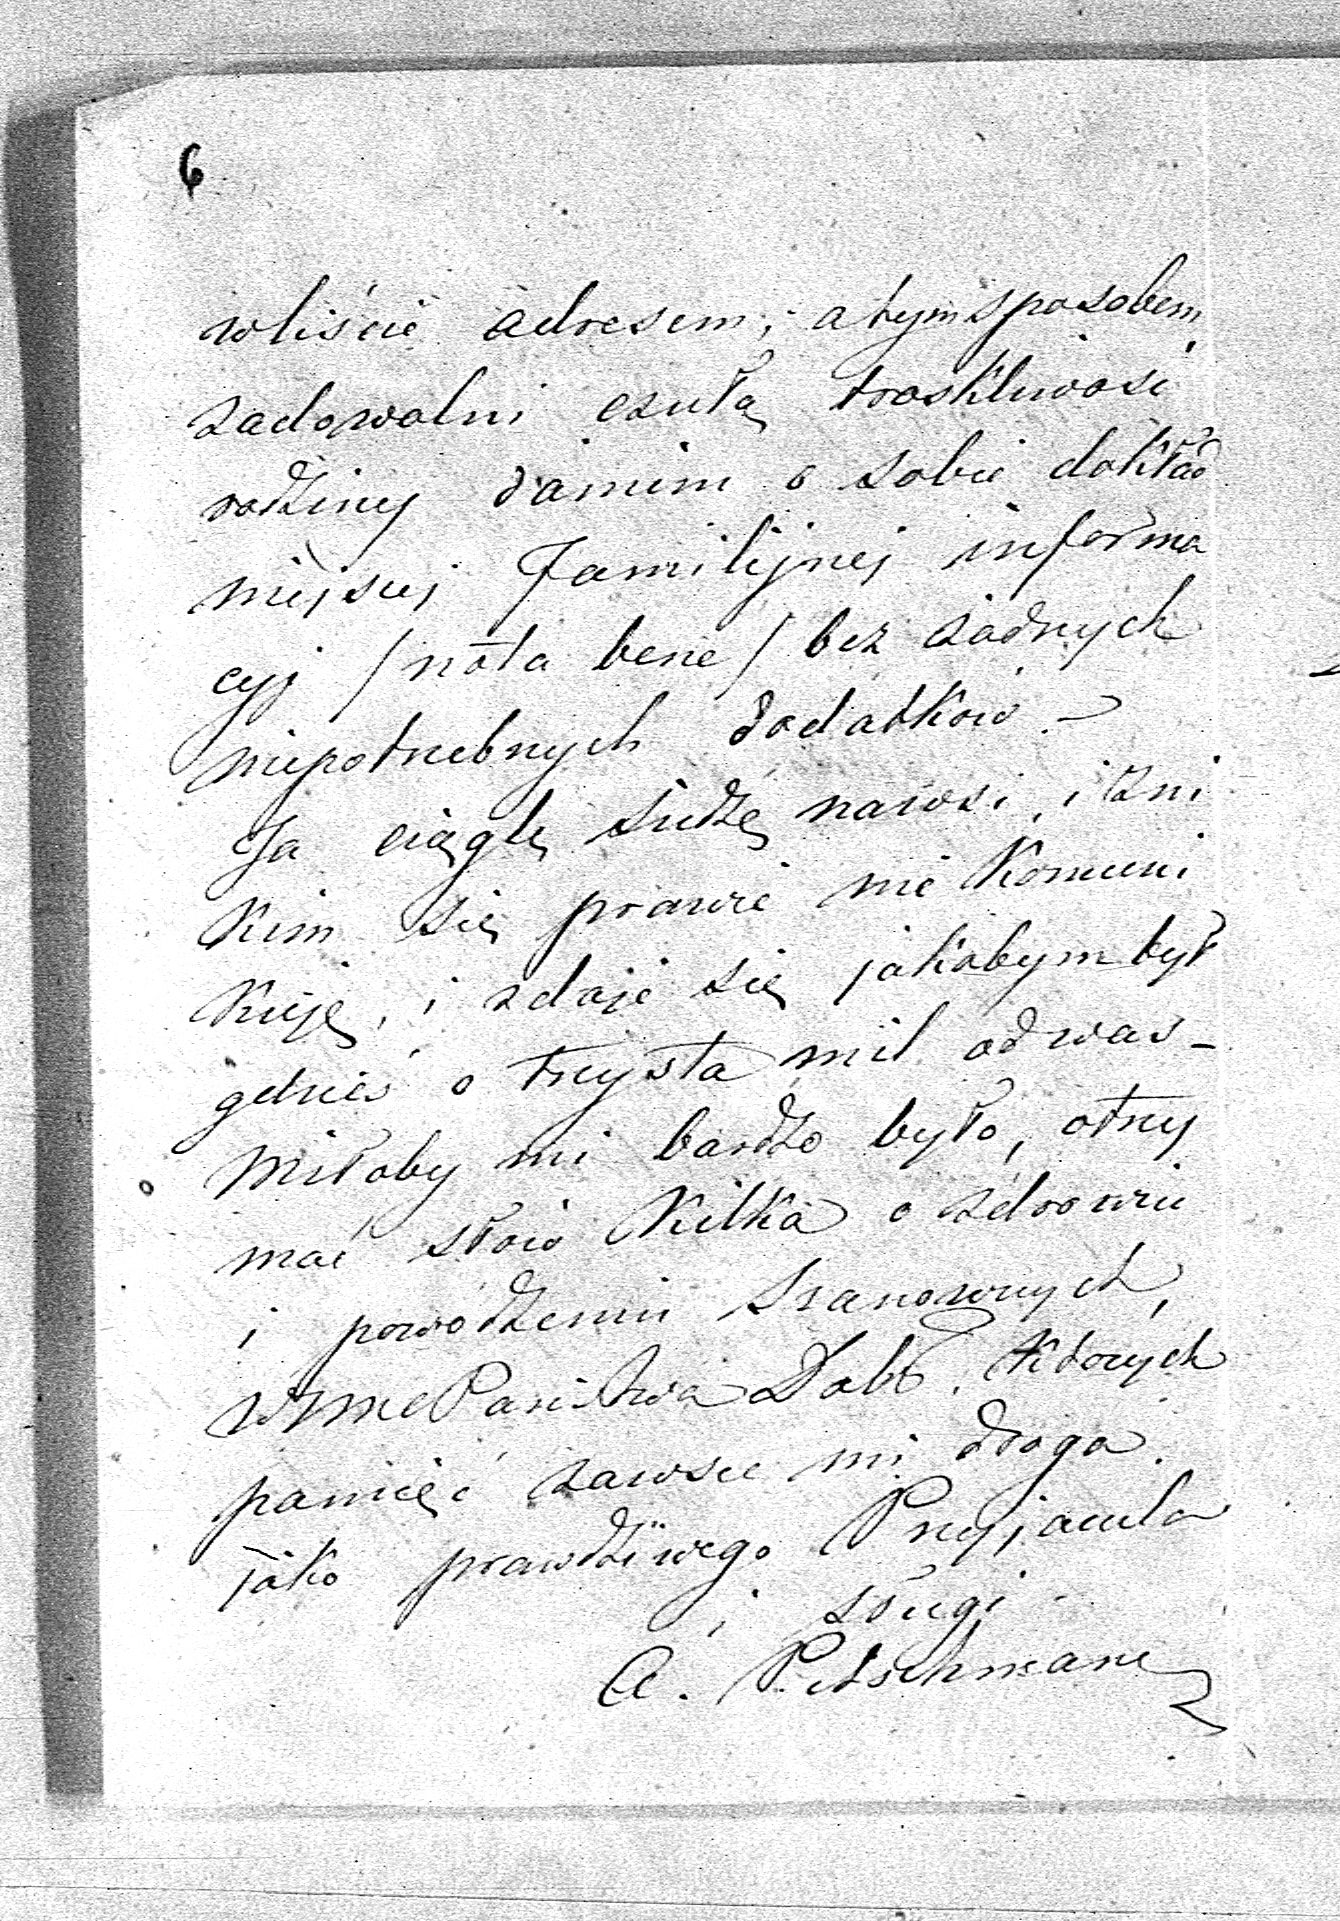 6
w liście adresem; a tym sposobem,
zadowolni czułą troskliwość
rodziny daniem o sobie dokład
niejszej Familijnej informa
cyj /nota bene/ bez żadnych
niepotrzebnych dodatków –
Ja ciągle siedzę na wsi, i z ni
kim się prawie nie komuni
kuję, i zdaje się jakobym był
gdzieś o trzysta mil od was –
Miłoby mi bardzo było, otrzy
mać słów kilka o zdrowiu
i powodzeniu Szanownych,
WJmć Państwa Dobr. których
pamięć zawsze mi droga
jako prawdziwego Przyjaciela
i sługi
A. Petschmane